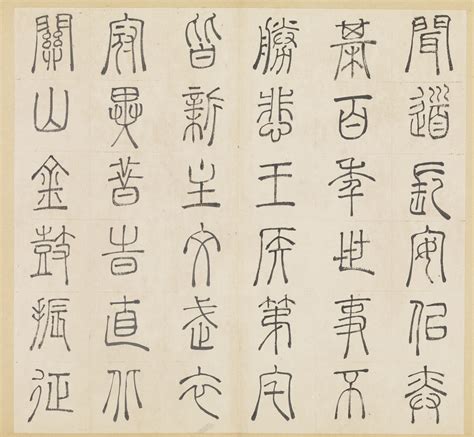 聞道長安佀弈
棊百年世事不
勝悲王矦第宅
皆新主文武衣
冠異昔昔直北
關山金鼓振征